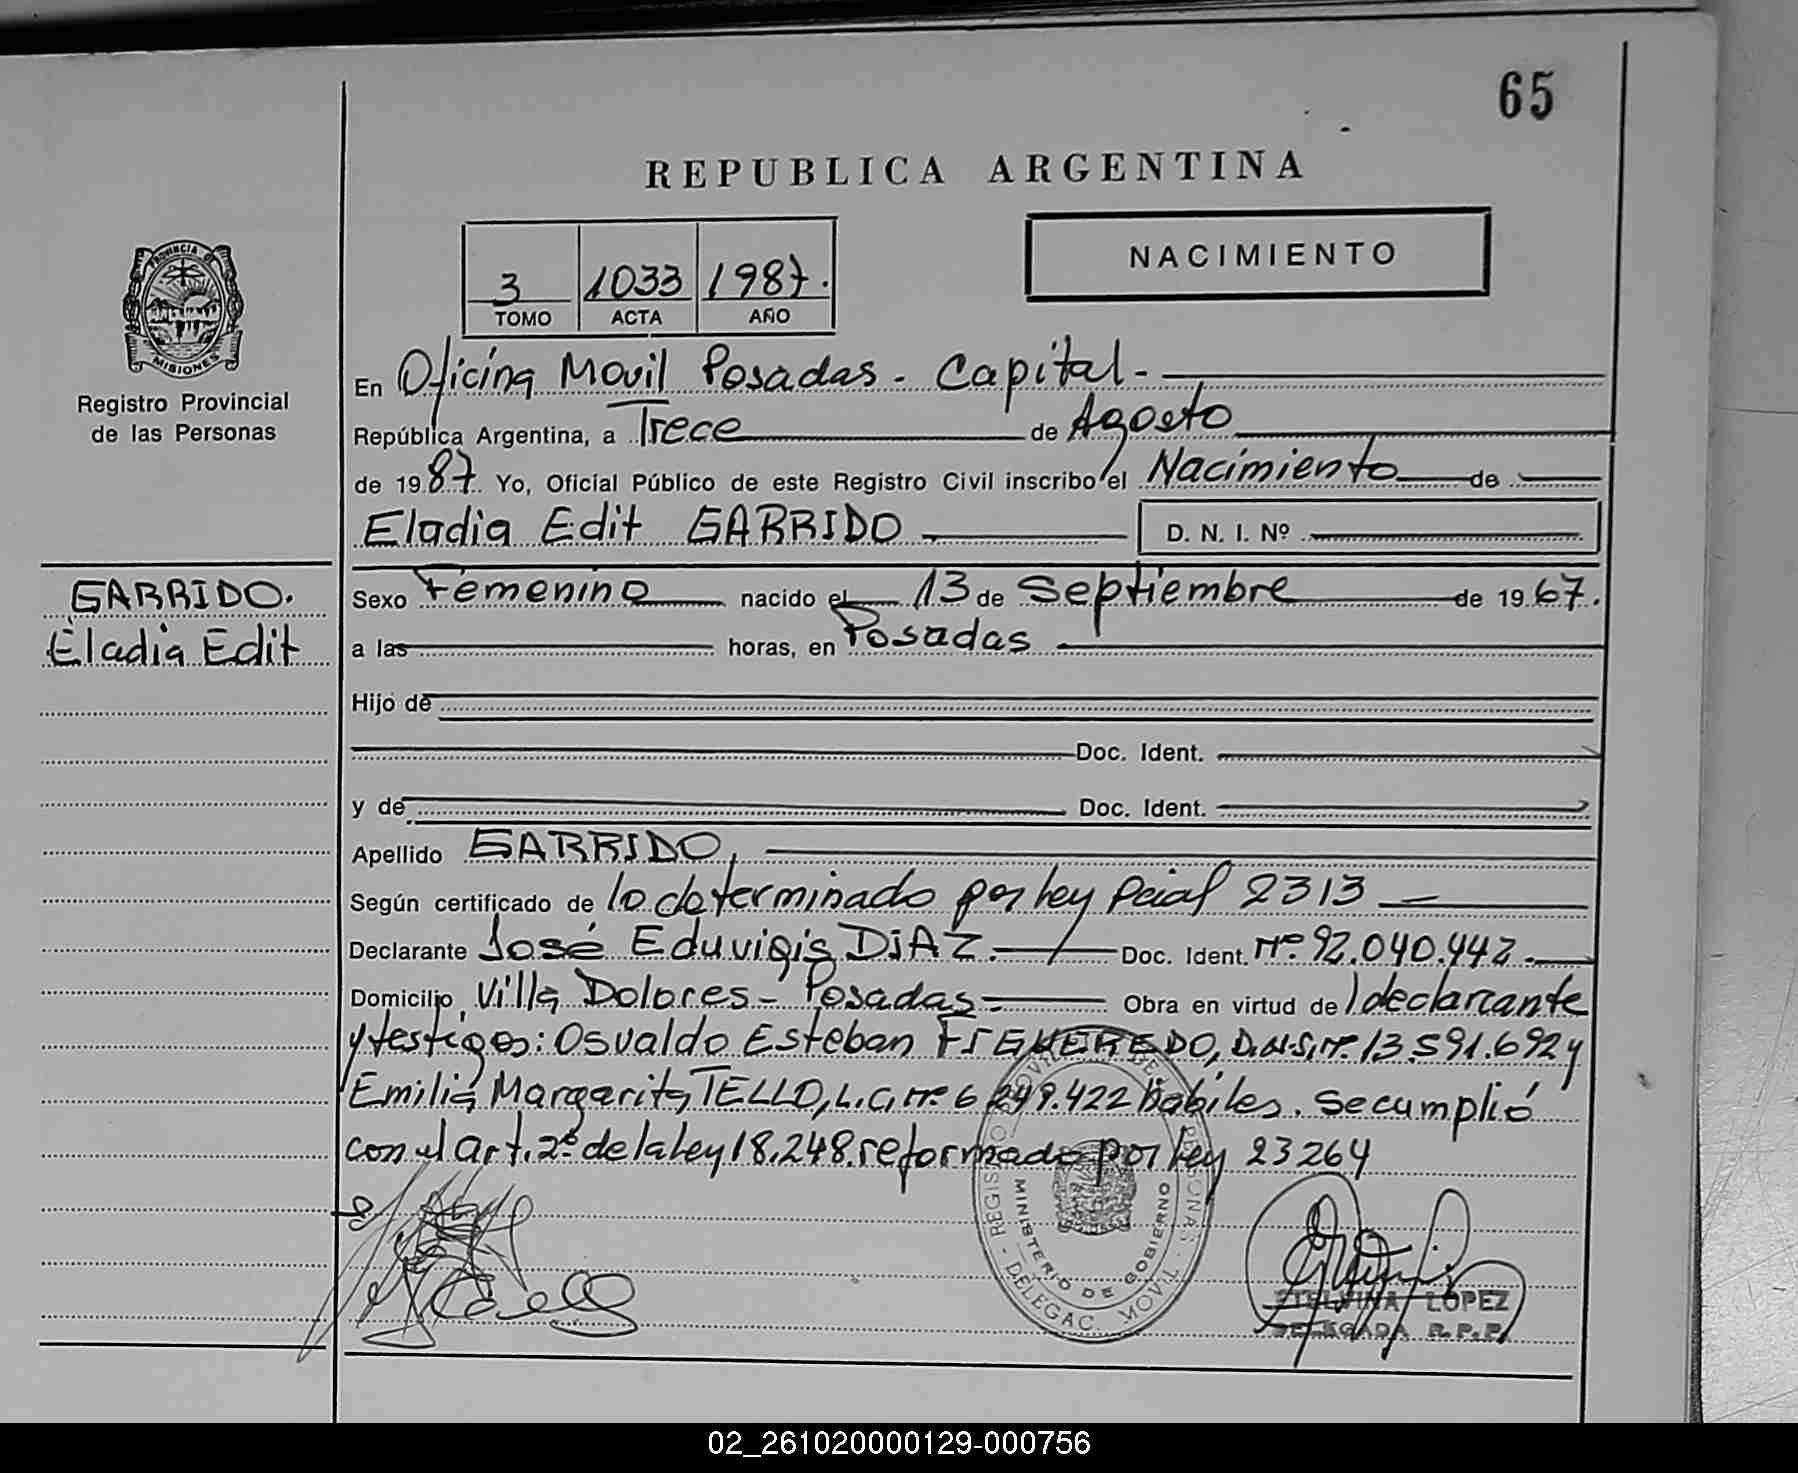 65
REPUBLICA ARGENTINA
3 1033 1987.
TOMO ACTA AÑO
NACIMIENTO
PROVINCIA D
MISIONES
Registro Provincial
de las Personas
En Oficina Movil Posadas - Capital -
República Argentina, a Trece de Agosto
de 1987. Yo, Oficial Público de este Registro Civil inscribo el Nacimiento de
Eladia Edit GARRIDO
D. N. I. Nº
GARRIDO.
Eladia Edit
Sexo Femenino nacido el 13 de Septiembre de 1967.
a las horas, en Posadas
Hijo de
Doc. Ident.
y de Doc. Ident.
Apellido GARRIDO,
Según certificado de lo determinado por ley Pcial 2313
Declarante José Eduvigis DiAZ. Doc. Ident. Nº 92.040.442.
Domicilio Villa Dolores - Posadas Obra en virtud de l declarante
y testigos: Osvaldo Esteban FIGUEREDO, D.N.I. nº 13.591.692 y
Emilia Margarita TELLO, L.C. nº 6.249.422 habiles. Se cumplió
con el art. 2º de la ley 18.248. reformado por ley 23264
MINISTERIO DE GOBIERNO
DELEGAC. MOVIL
ETELVINA LOPEZ
DELEGADA R.P.P.
02_261020000129-000756